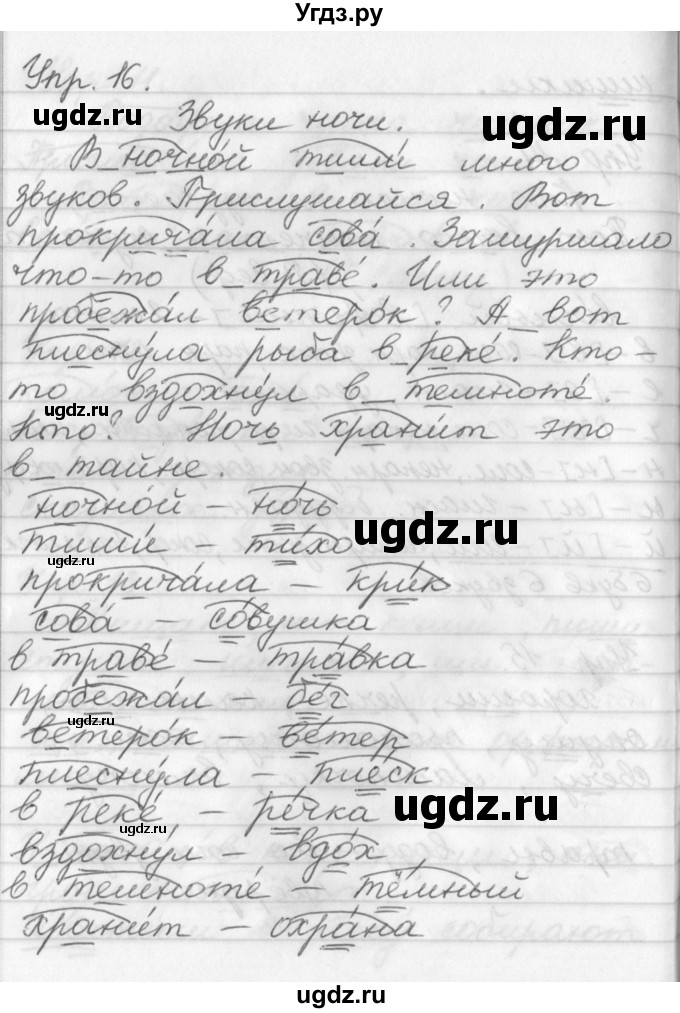 Угдз.ру
Упр. 16.
Звуки ночи.
В ночно́й тиши́ много
звуков. Прислушайся. Вот
прокрича́ла сова́. Зашуршало
что-то в траве́. Или это
пробежа́л ветеро́к? А вот
плесну́ла рыба в реке́. Кто-
то вздохну́л в темноте́.
Кто? Ночь храни́т это
в тайне.
ночно́й – но́чь
тиши́ – ти́хо
прокрича́ла – кри́к
сова́ – со́вушка
в траве́ – тра́вка
пробежа́л – бе́г
ветеро́к – ве́тер
плесну́ла – пле́ск
в реке́ – ре́чка
вздохну́л – вдо́х
в темноте́ – тёмный
храни́т – охра́на
ugdz.ru
ugdz.ru
ugdz.ru
ugdz.ru
ugdz.ru
ugdz.ru
ugdz.ru
ugdz.ru
ugdz.ru
ugdz.ru